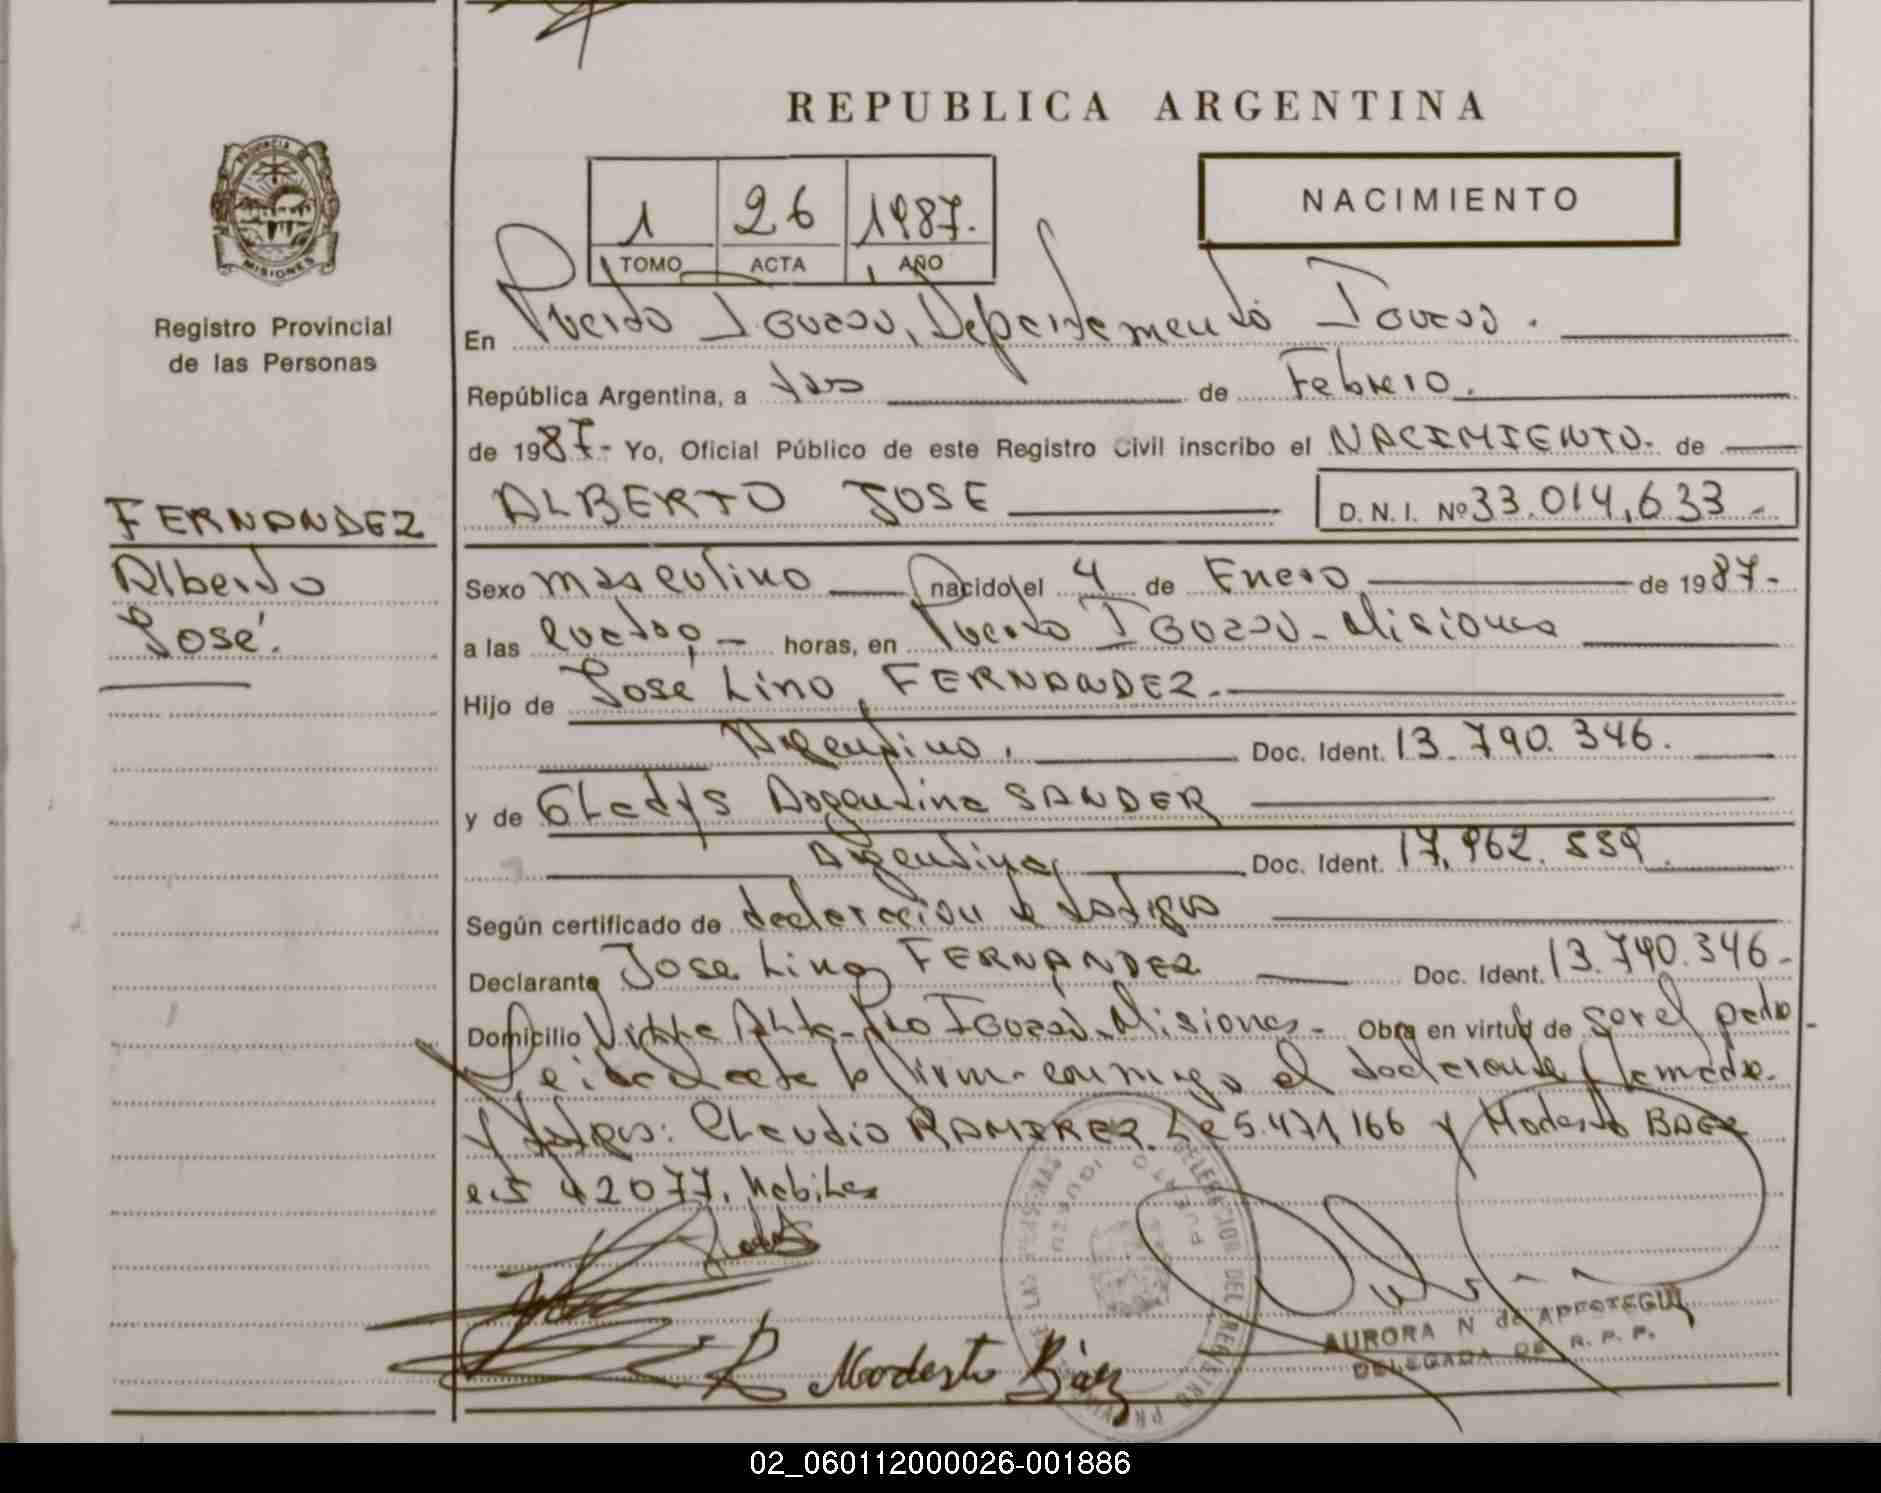 REPUBLICA ARGENTINA
PROVINCIA DE
MISIONES
Registro Provincial
de las Personas
NACIMIENTO
1 26 1987.
TOMO ACTA AÑO
En Puerto Iguazú, Departamento Iguazú.
República Argentina, a tres de Febrero.
de 1987- Yo, Oficial Público de este Registro Civil inscribo el NACIMIENTO. de
FERNANDEZ
Alberto
José.
ALBERTO JOSE D.N.I. Nº 33.014,633-
Sexo masculino nacido el 4 de Enero de 1987-
a las cuatro, horas, en Puerto Iguazú-Misiones
Hijo de José Lino FERNANDEZ.
Argentino. Doc. Ident. 13.790.346.
y de Gladys Argentina SANDER
Argentina, Doc. Ident. 17.962.559.
Según certificado de declaración de testigos
Declarante Jose Lino FERNANDEZ Doc. Ident. 13.790.346-
Domicilio Villa Alta-Pto Iguazú-Misiones- Obra en virtud de ser el padre
Leida el acta la firman conmigo el declarante, la madre.
y testigos: Claudio RAMIREZ. 5.471166 y Modesto BAEZ
42077. habiles
Modesto Báez
DELEGACION DEL REGISTRO PROVINCIAL DE LAS PERSONAS
PUERTO IGUAZU
AURORA N de APESTEGUI
DELEGADA DE R. P. P.
02_060112000026-001886